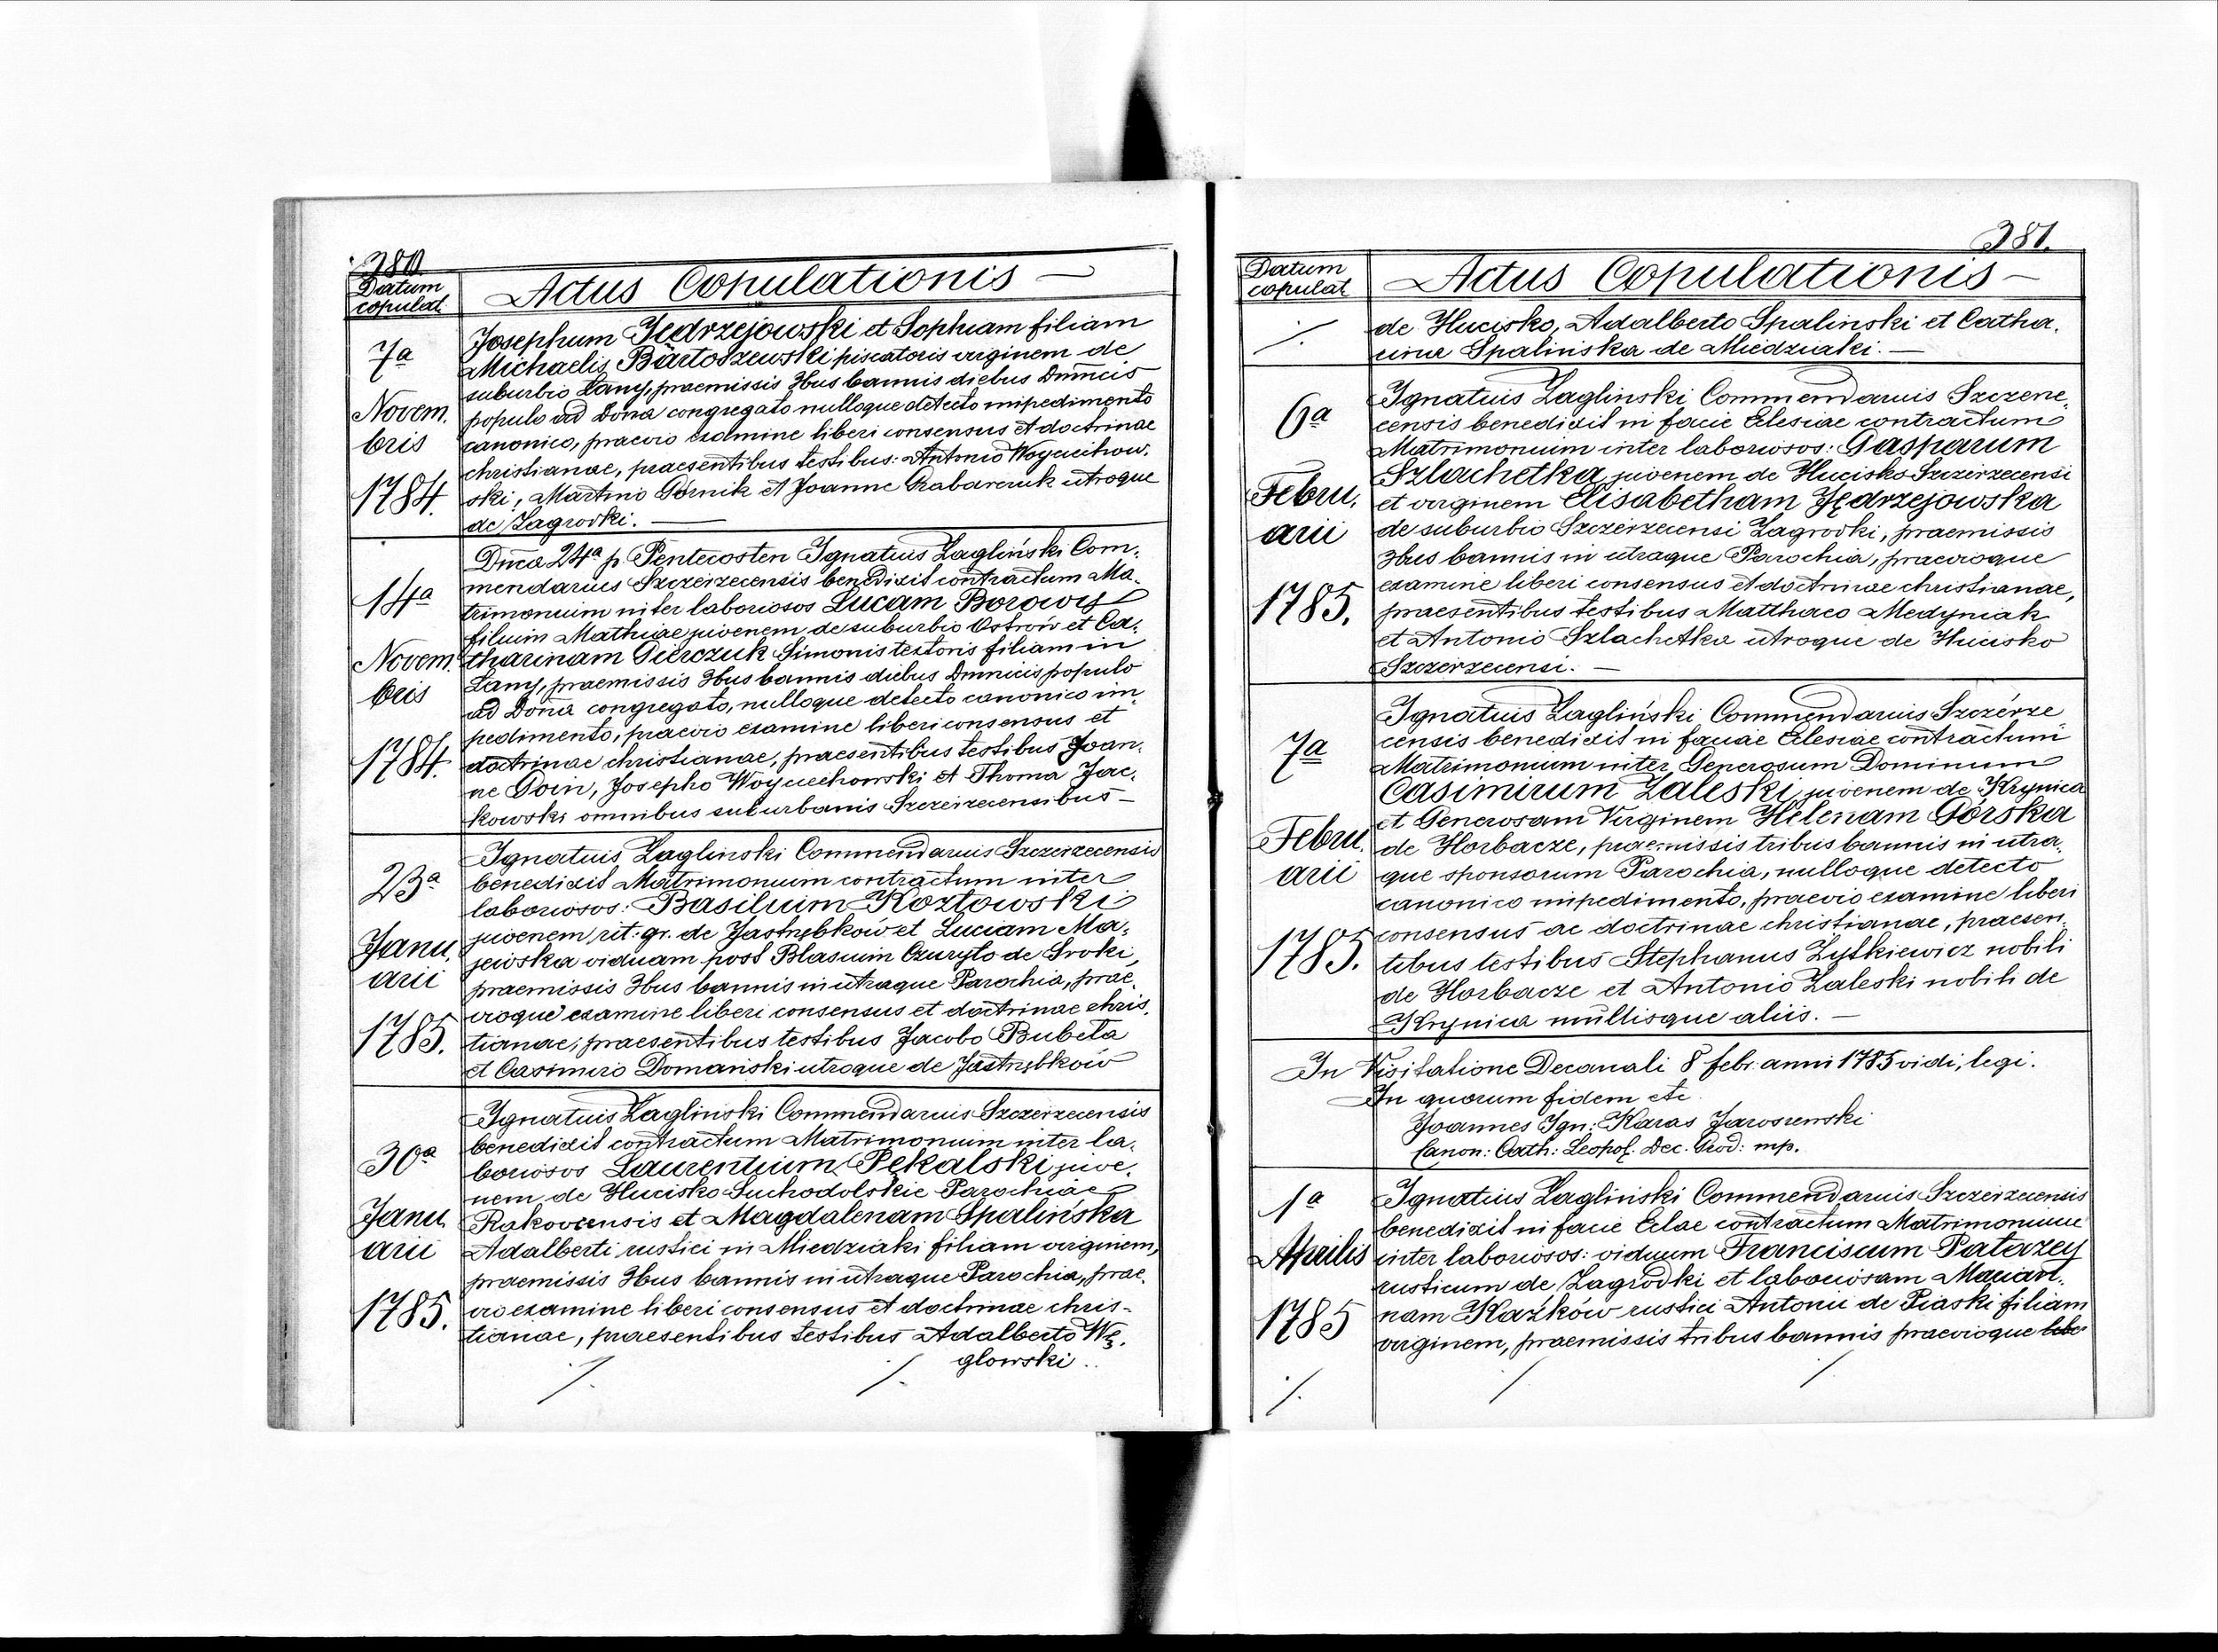 380.
Datum
copulat.
Actus Copulationis —
7a
Novem.
bris
1784.
Josephum Jędrzejowski et Sophiam filiam
Michaelis Bartoszewski piscatoris virginem de
suburbio Łany, praemissis 3bus bannis diebus Dmnicis
populo ad Dona congregato nulloque detecto impedimento
canonico, praevio examine liberi consensus et doctrinae
christianae, praesentibus testibus: Antonio Woyciechow.
ski, Martino Górnik et Joanne Grabarczuk utroque
de Zagrodki. —
14a
Novem.
bris
1784.
Dnica 24a p Pentecosten Ignatius Zagliński Com.
mendarius Szczerzecensis benedixit contractum Ma.
trimonium inter laboriosos Lucam Borowy
filium Mathiae juvenem de suburbio Ostrów et Ca.
tharinam Pierczuk Simonis textoris filiam in
Łany, praemissis 3bus bannis diebus Dmnicis populo
ad Dona congregato, nulloque detecto canonico im
pedimento, praevio examine liberi consensus et
doctrinae christianae, praesentibus testibus Joan.
ne Goin, Josepho Woyciechowski et Thoma Jac.
kowski omnibus suburbanis Szczerzecensibus —
23a
Janu.
arii
1785.
Ignatius Zagliński Commendarius Szczerzecensis
benedixit Matrimonium contractum inter
laboriosos: Basilium Kozłowski
juvenem rit: gr. de Jastrzębków et Luciam Ma.
jewska viduam post Blasium Czuryło de Sroki,
praemissis 3bus bannis in utraque Parochia, prae.
vioque examine liberi consensus et doctrinae chris.
tianae, praesentibus testibus Jacobo Bubeła
et Casimiro Domański utroque de Jastrzębków
30a
Janu.
arii
1785.
Ignatius Zagliński Commendarius Szczerzecensis
benedixit contractum Matrimonium inter la.
boriosos Laurentium Pękalski juve.
nem de Hucisko Suchodolskie Parochiae
Rakoviensis et Magdalenam Spalińska
Adalberti rustici in Miedziaki filiam virginem,
praemissis 3bus bannis in utraque Parochia, prae.
vio examine liberi consensus et doctrinae chris-
tianae, praesentibus testibus Adalberto Wę.
glowski..
381.
Datum
copulat
Actus Copulationis —
de Hucisko, Adalberto Spalinski et Catha.
rina Spalińska de Miedziaki. —
6a
Febru.
arii
1785.
Ignatius Zagliński Commendarius Szczerze.
censis benedixit in facie Eclesiae contractum
Matrimonium inter laboriosos: Gasparum
Szlachetka juvenem de Hucisko Szczerzecensi
et virginem Elisabetham Jędrzejowska
de suburbio Szczerzecensi Zagrodki, praemissis
3bus bannis in utraque Parochia, praevioque
examine liberi consensus et doctrinae christianae,
praesentibus testibus Matthaeo Medyniak
et Antonio Szlachetka utroque de Hucisko
Szczerzecensi. —
7a
Febru.
arii
1785.
Ignatius Zagliński Commendarius Szczérze.
censis benedixit in faciae Eclesiae contractum
Matrimonium inter Generosum Dominum
Casimirum Zaleski, juvenem de Krynica
et Generosam Virginem Hélenam Górska
de Horbacze, praemissis tribus bannis in utra.
que sponsorum Parochia, nulloque detecto
canonico impedimento, praevio examine liberi
consensus ac doctrinae christianae, praesen.
tibus testibus Stephanus Zytkiewicz nobili
de Horbacze et Antonio Zaleski nobili de
Krynica multisque aliis. —
In Visitatione Decanali 8 febr. anni 1785 vidi, legi.
In quorum fidem etc
Joannes Ign: Karas Jaroszewski
Canon: Cath: Leopol. Dec. Grod: mp.
1a
Aprilis
1785
Ignatius Zagliński Commendarius Szczerzecensis
benedixit in facie Eclae contractum Matrimonium
inter laboriosos: viduum Franciscum Patażey
rusticum de Zagrodki et laboriosam Marian.
nam Kaźków rustici Antonii de Piaski filiam
virginem, praemissis tribus bannis praevioque